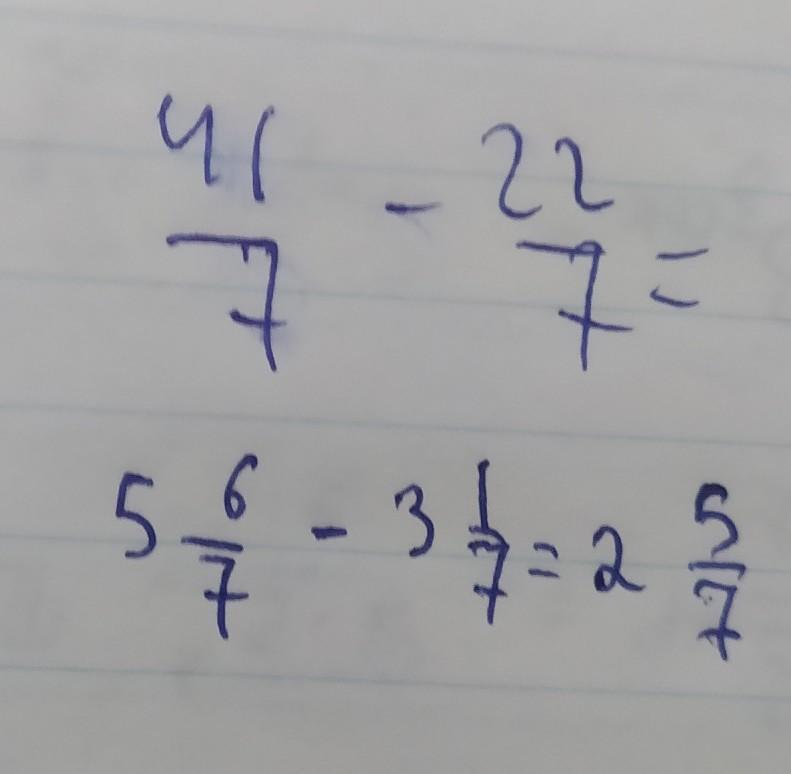 41/7 - 22/7 =
5 6/7 - 3 1/7 = 2 5/7